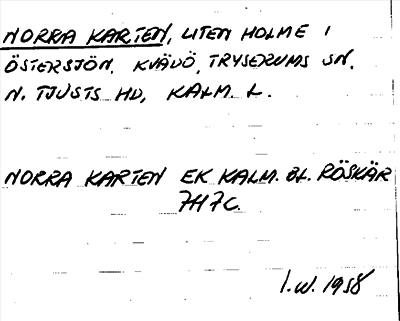 NORRA KARTEN, LITEN HOLME I
ÖSTERSJÖN, KVÄDÖ, TRYSERUMS SN,
N. TJUSTS HD, KALM. L.
NORRA KARTEN EK KALM. BL. RÖSKÄR
7H7C.
I.W. 1958